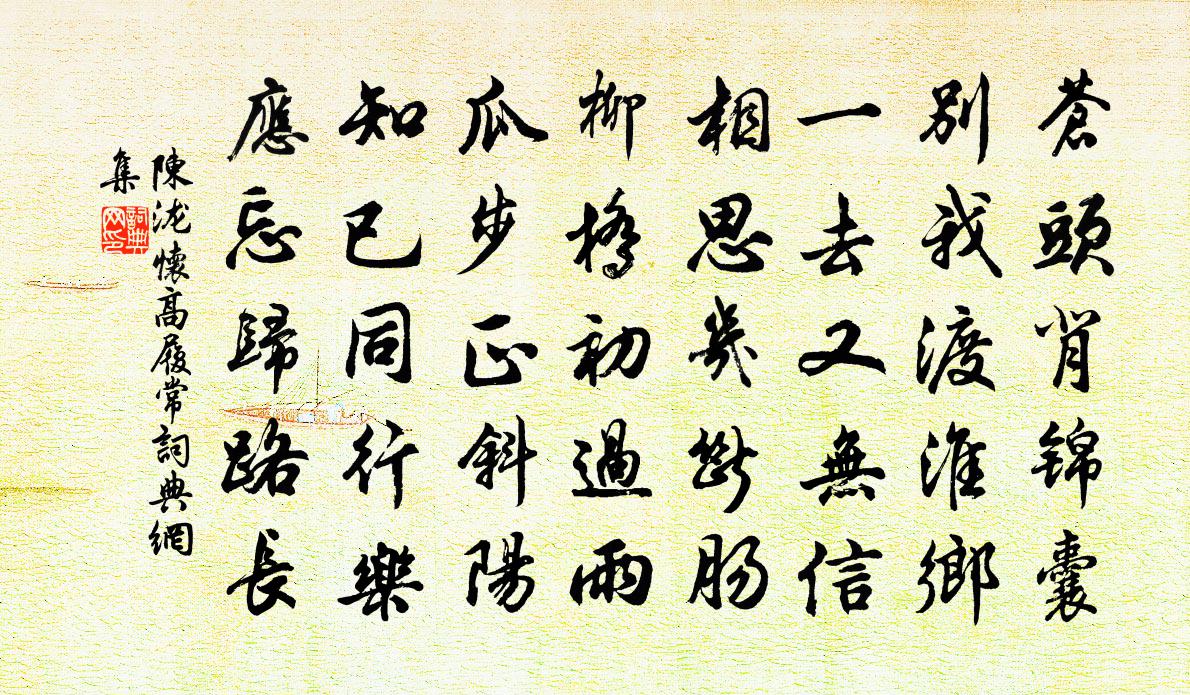 蒼頭肖錦囊
別我渡淮鄉
一去又無信
相思幾斷腸
柳橋初過雨
瓜步正斜陽
知已同行樂
應忘歸路長
陳泷懷高履常詞典網
集
詞典网印